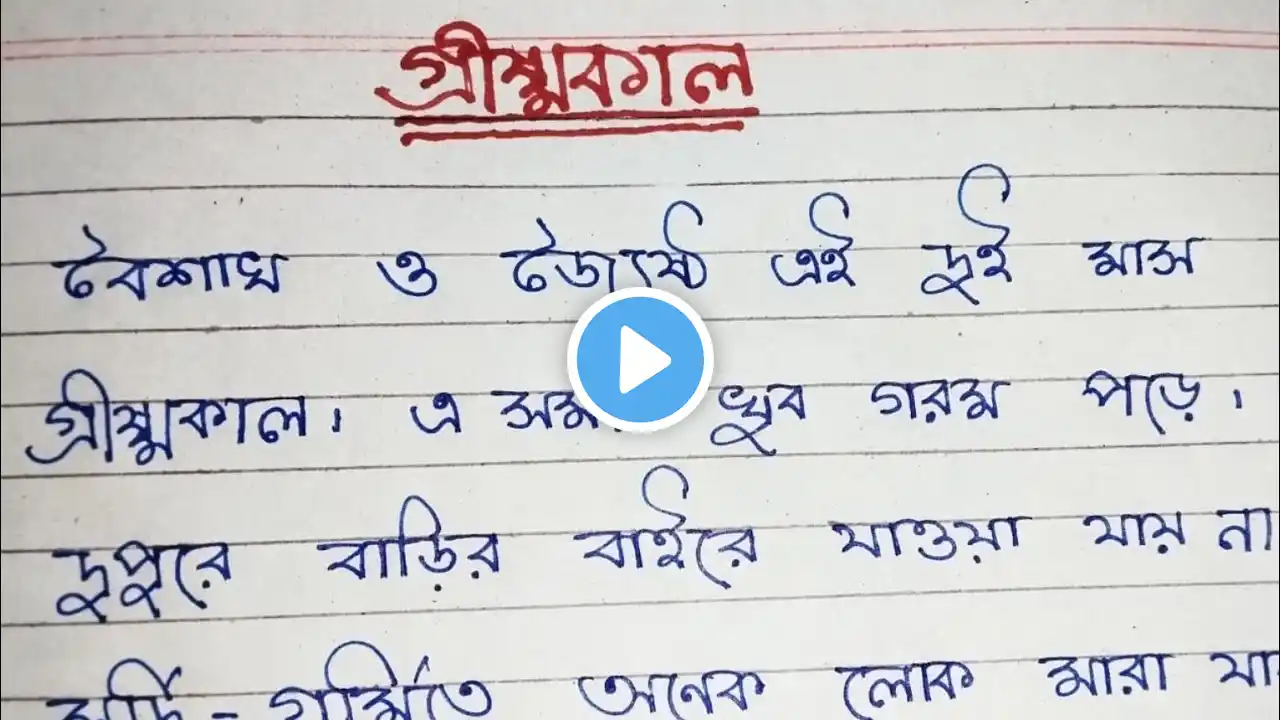 গ্রীষ্মকাল
বৈশাখ ও জ্যৈষ্ঠ এই দুই মাস
গ্রীষ্মকাল। এ সময় খুব গরম পড়ে।
দুপুরে বাড়ির বাইরে যাওয়া যায় না
সর্দি-গর্মিতে অনেক লোক মারা যা